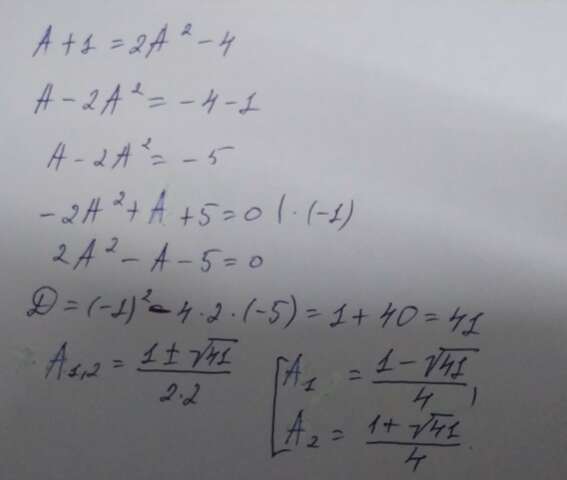 A + 1 = 2A² - 4
A - 2A² = -4 - 1
A - 2A² = -5
-2A² + A + 5 = 0 | · (-1)
2A² - A - 5 = 0
D = (-1)² - 4 · 2 · (-5) = 1 + 40 = 41
A₁,₂ = (1 ± √41)/(2·2) [ A₁ = (1 - √41)/4 ,
A₂ = (1 + √41)/4 .